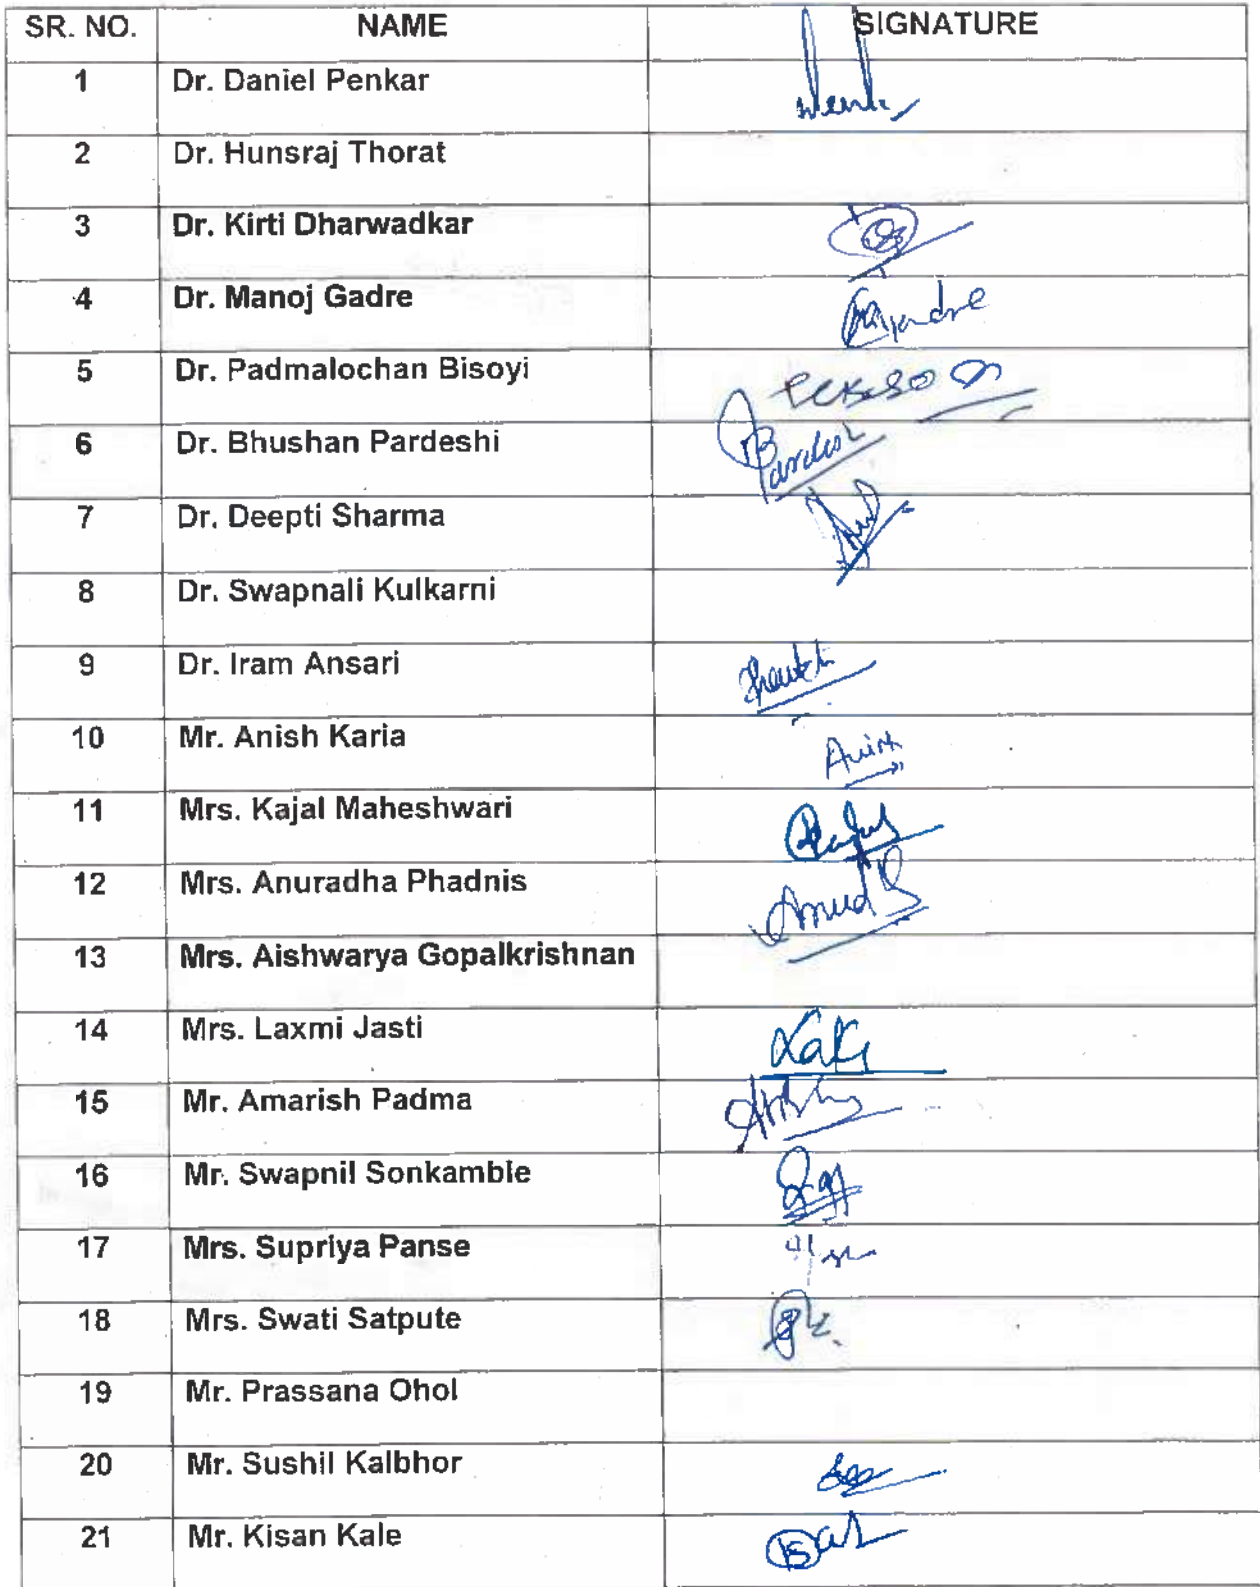 SR. NO. NAME SIGNATURE
1 Dr. Daniel Penkar
2 Dr. Hunsraj Thorat
3 Dr. Kirti Dharwadkar
4 Dr. Manoj Gadre
5 Dr. Padmalochan Bisoyi
6 Dr. Bhushan Pardeshi
7 Dr. Deepti Sharma
8 Dr. Swapnali Kulkarni
9 Dr. Iram Ansari
10 Mr. Anish Karia
11 Mrs. Kajal Maheshwari
12 Mrs. Anuradha Phadnis
13 Mrs. Aishwarya Gopalkrishnan
14 Mrs. Laxmi Jasti
15 Mr. Amarish Padma
16 Mr. Swapnil Sonkamble
17 Mrs. Supriya Panse
18 Mrs. Swati Satpute
19 Mr. Prassana Ohol
20 Mr. Sushil Kalbhor
21 Mr. Kisan Kale